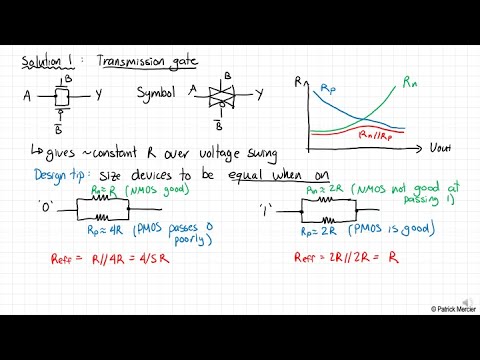 Solution 1 : Transmission gate
B
A
Y
B̅
Symbol
B
A
Y
B̅
R
Rp
Rn
Rn//Rp
Vout
↳ gives ~constant R over voltage swing
Design tip: size devices to be equal when on
Rn ≈ R (NMOS good)
'0'
Rp ≈ 4R (PMOS passes 0 poorly)
Reff = R//4R = 4/5 R
Rn ≈ 2R (NMOS not good at passing 1)
'1'
Rp = 2R (PMOS is good)
Reff = 2R//2R = R
© Patrick Mercier